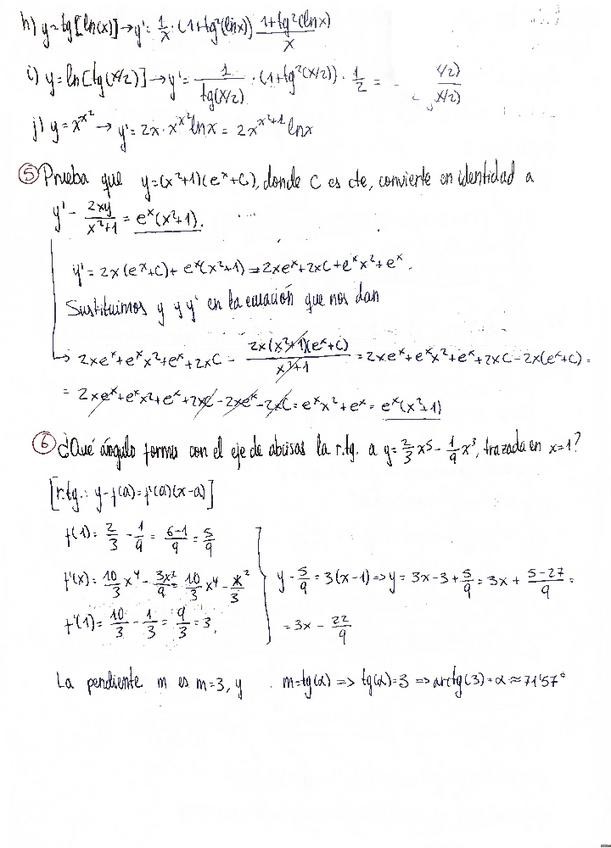 h) y=tg[ln(x)]→y'=1/x·(1+tg²(lnx)) (1+tg²(lnx))/x
i) y=ln[tg(x/2)]→y'=1/tg(x/2)·(1+tg²(x/2))·1/2=
j) y=x^x²→y'=2x·x^x² lnx=2x^x²+1 lnx
⑤ Prueba que y=(x²+1)(e^x+C), donde C es cte, convierte en identidad a
y'-2xy/x²+1=e^x(x²+1).
y'=2x(e^x+C)+e^x(x²+1)⇒2xe^x+2xC+e^x x²+e^x.
Sustituimos y y y' en la ecuación que nos dan
→2xe^x+e^x x²+e^x+2xC-2x(x²+1)(e^x+C)/x²+1=2xe^x+e^x x²+e^x+2xC-2x(e^x+C)=
=2xe^x+e^x x²+e^x+2xC-2xe^x-2xC=e^x x²+e^x=e^x(x²+1)
⑥ ¿Qué ángulo forma con el eje de abcisas la r.tg. a y=2/3x⁵-1/9x³, trazada en x=1?
[r.tg.: y-f(a)=f'(a)(x-a)]
f(1)=2/3-1/9=6-1/9=5/9
f'(x)=10/3x⁴-3x²/9=10/3x⁴-x²/3
y-5/9=3(x-1)⇒y=3x-3+5/9=3x+5-27/9=
f'(1)=10/3-1/3=9/3=3,
=3x-22/9
La pendiente m es m=3, y m=tg(α)⇒tg(α)=3⇒arctg(3)=α≈71'57°